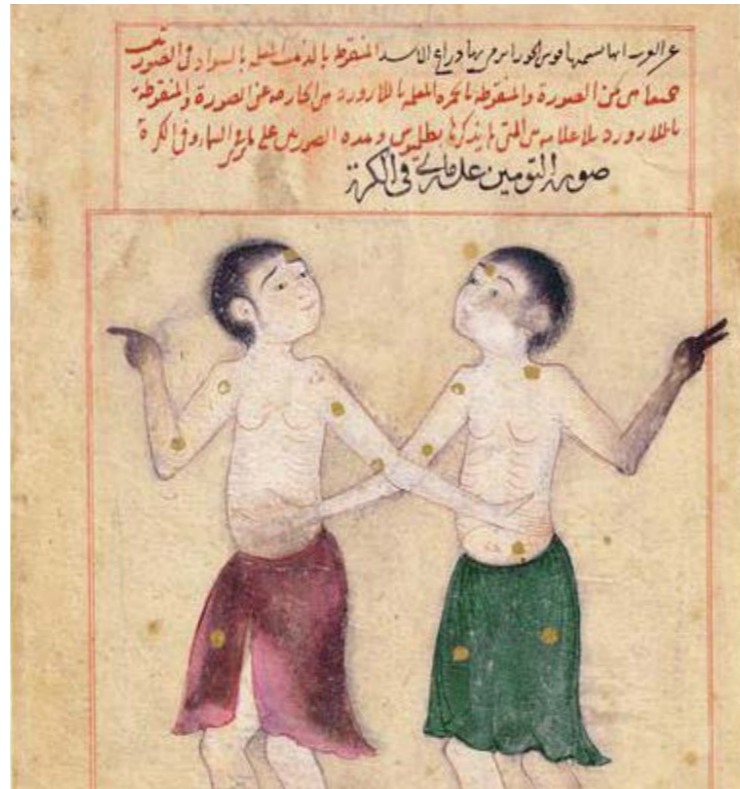 عن العرب انها تسميها قوس الجوزا يرمي بها ذراع الاسد المنقوطه بالذهب المعلمه بالسواد في الصورتين
جميعا من كن الصورة والمنقوطه بالحمره المعلمه باللازورد من الخارجه عن الصورة والمنقوطه
باللازورد بلا علامه من التي لم يذكرها بطلميوس وهذه الصورتين على ما في السماء وفي الكرة
صورة التومين على ما يرى في الكرة